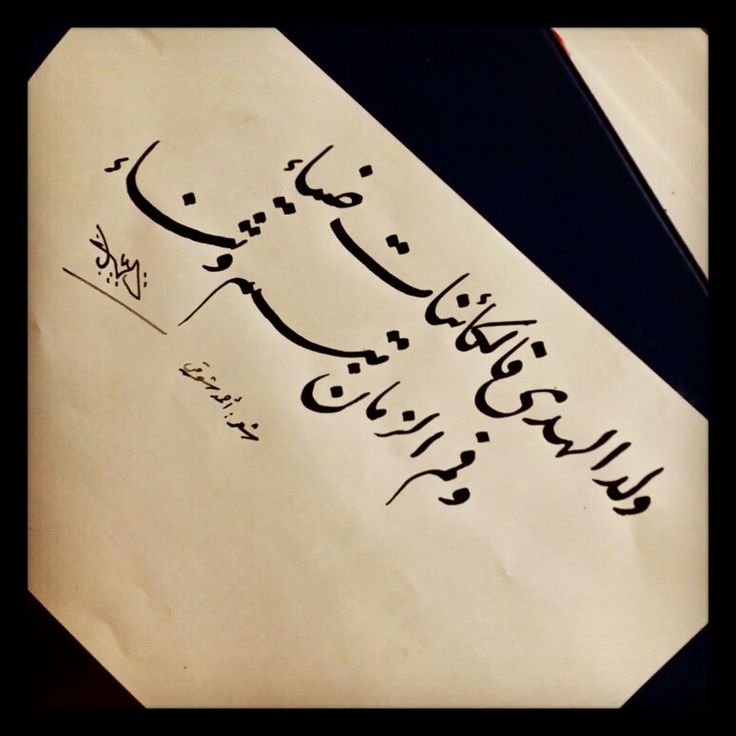 ولد الهدى فالكائنات ضياء
وفم الزمان تبسم وثناء
شعر: أحمد شوقي